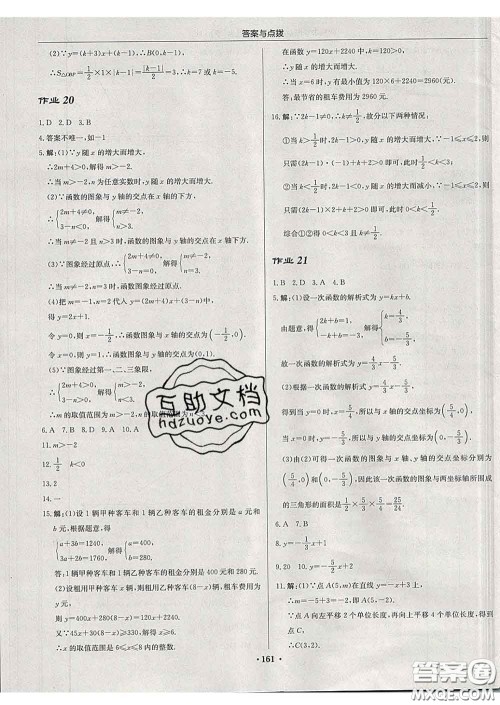 答案与点拨
(2)∵y=(k+3)x+k-1,∴B(0,k-1).
∴S△OBF=1/2×1×|k-1|=|k-1|/2=3.∴k=7或k=-5.
作业 20
1. D 2. D 3. D
4. 答案不唯一,如-1
5. 解:(1)∵y随x的增大而增大,
∴2m+4>0.解得m>-2.
∴当m>-2,n为任意实数时,y随x的增大而增大.
(2)∵函数的图象与y轴的交点在x轴的下方,
∴{2m+4≠0, 3-n<0. 解得{m≠-2, n>3.
∴当m≠-2且n>3时,函数的图象与y轴的交点在x轴下方.
(3)∵图象经过原点,∴{2m+4≠0, 3-n=0. 解得{m≠-2, n=3.
∴当m≠-2且n=3时,函数图象过原点.
(4)把m=-1,n=2代入y=(2m+4)x+(3-n)中,
得y=2x+1.
令y=0,x=-1/2,∴函数图象与x轴的交点为(-1/2,0).
令x=0,y=1,∴函数图象与y轴的交点为(0,1).
(5)∵图象经过第一、二、三象限,
∴{2m+4>0, 3-n>0. 解得{m>-2, n<3.
∴m的取值范围为m>-2,n的取值范围为n<3.
6. A 7. B 8. D 9. A
11. m>-2
12. 1/2 k<0
13. 2
14. 一
15. 解:(1)设1辆甲种客车和1辆乙种客车的租金分别是a元和
b元,根据题意,得
{a+3b=1240, 3a+2b=1760. 解得{a=400, b=280.
答:1辆甲种客车和1辆乙种客车的租金分别是400元和280元.
(2)设租用甲种客车x辆,则租用乙种客车(8-x)辆.
y=400x+280(8-x)=120x+2240.
又∵45x+30(8-x)≥330,解得x≥6.
∴x的取值范围是6≤x≤8的整数.
在函数y=120x+2240中,∵120>0,
∴y随x的增大而增大.
∴当x=6时,y的最小值为120×6+2240=2960(元).
答:最节省的租车费用为2960元.
16. 解:∵2k-1≠0,∴k≠1/2,故分以下两种情况:
①当2k-1>0,即k>1/2时,y随x的增大而增大.
∵-1≤x≤2,则
只需-(2k-1)-k+2>0即可,此时1/2<k<1.
②当2k-1<0,即k<1/2时,y随x的增大而减小.∵-1≤x≤2,则
只需2(2k-1)-k+2>0即可,此时0<k<1/2.
综合①②得0<k<1且k≠1/2.
作业 21
1. D 2. C 3. A 4. B
5. 解:(1)设一次函数的解析式为y=kx+b,
由题意,得{2k+b=1, -k+b=-3. 解得{k=4/3, b=-5/3.
故一次函数的解析式为y=4/3x-5/3.
(2)根据一次函数的解析式y=4/3x-5/3,
得到当y=0时,x=5/4,所以与x轴的交点为(5/4,0).
当x=0时,y=-5/3,所以与y轴的交点为(0,-5/3).
(3)由(2)可得一次函数的图象与x轴、y轴的交点分别为
(5/4,0)和(0,-5/3),因此该一次函数的图象与两坐标轴所围成
的三角形的面积是1/2×5/3×5/4=25/24.
6. A 7. B
8. y=-1/2x+1
9. 20 10. y=-x+3
11. 解:(1)∵点A(5,m)在直线y=-x+3上,
∴m=-5+3=-2.
∵点A向左平移2个单位长度,再向上平移4个单位长度得到点C,
∴C(3,2).
互助文档
hdzuoye.com
答案圈
MXQE.COM
·161·